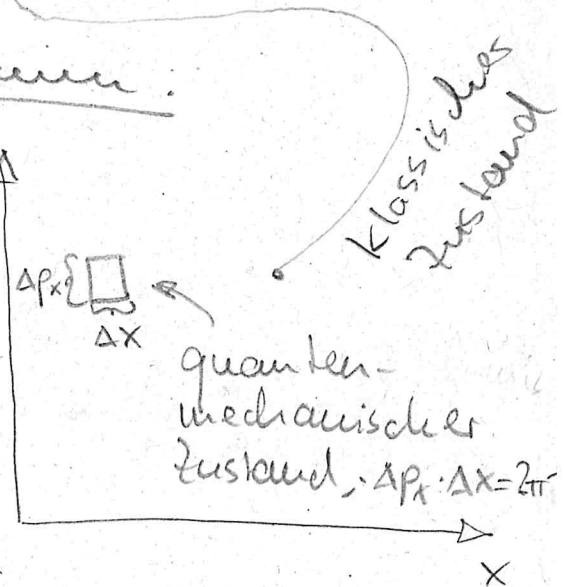 klassisches
Zustand
Δpx
ΔX
quanten-
mechanischer
Zustand, Δpx·ΔX=2π
X